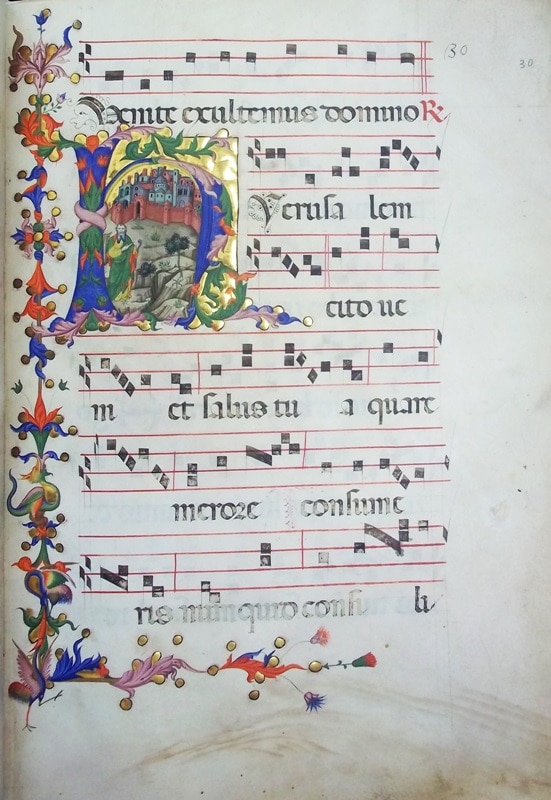 30
30
Venite exultemus domino R
Jerusa lem
cito ue
ni et salus tu a quare
merore consume
ris nunquid consi li